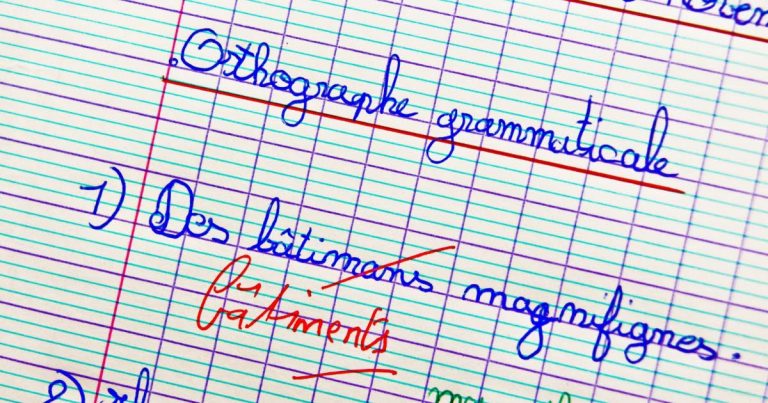 Orthographe grammaticale
1) Des bâtimans magnifignes.
bâtiments
2)